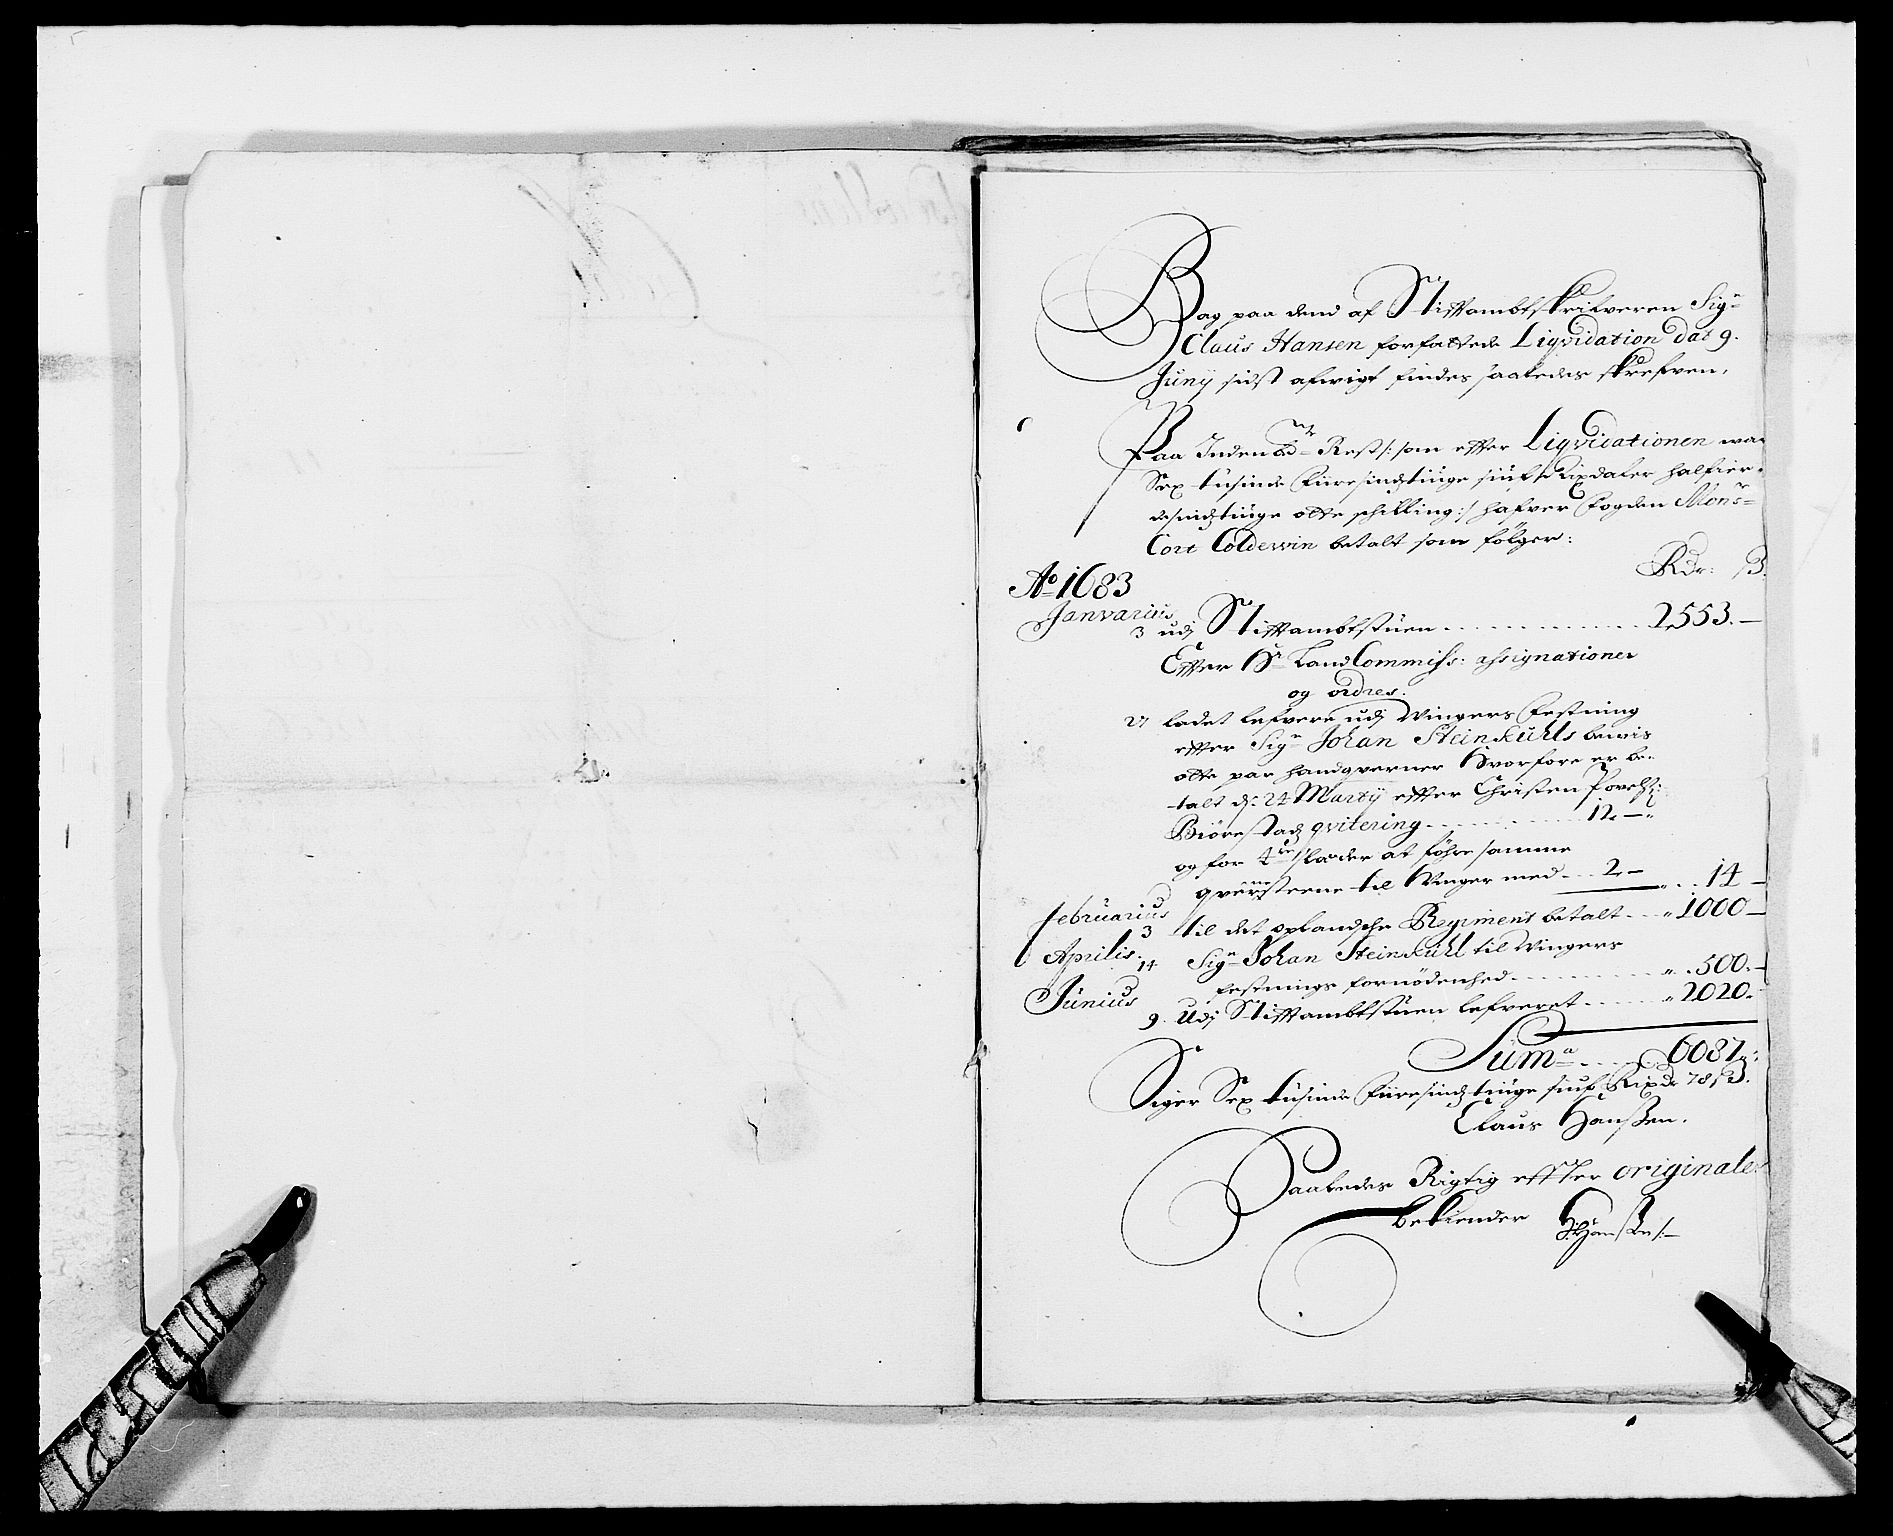 Bag paa dend af Stifftambtskrifveren Sigr
Claus Hansen forfattede Liqvidation dat 9.
Junij sidst afwigt findes saaledes skrefven,
Paa Rest /: som effter Liqvidationen war
Sex tusinde fiiresindstiuge siuf Rixdaler halfier-
desindstiuge otte schilling :/ hafver fogden Monsr
Cort Coldewin betalt som følger:
Rdr: ß.
Ao 1683
Janvarius
3 udj Stifftambtstuen 2553.—
Effter Hr Land Commiss: assignationer
og ordres.
27 ladet lefvere udj Wingers festning
effter Sigr Johan Steinkuhls bewis
otte par handqverner hvorfore er be-
talt d: 24 Martij effter Christen Povelss:
Biørestads qvitering 12.—
og for 4re slæder at føhre samme
qvernsteene til Winger med 2— 14—
Februarius
3 til det oplandsche Regiment betalt 1000—
Aprilis.
14 Sigr Johan Steinkuhl til Wingers
festnings fornødenhed 500.—
Junius
9. Udj Stifftambtstuen lefveret 2020.
Suma 6087.
Siger Sex tusinde fiiresindstiuge siuf Rixdr 78 ß.
Claus Hanssen.
Saaledes Rigtig effter originalen
bekiender